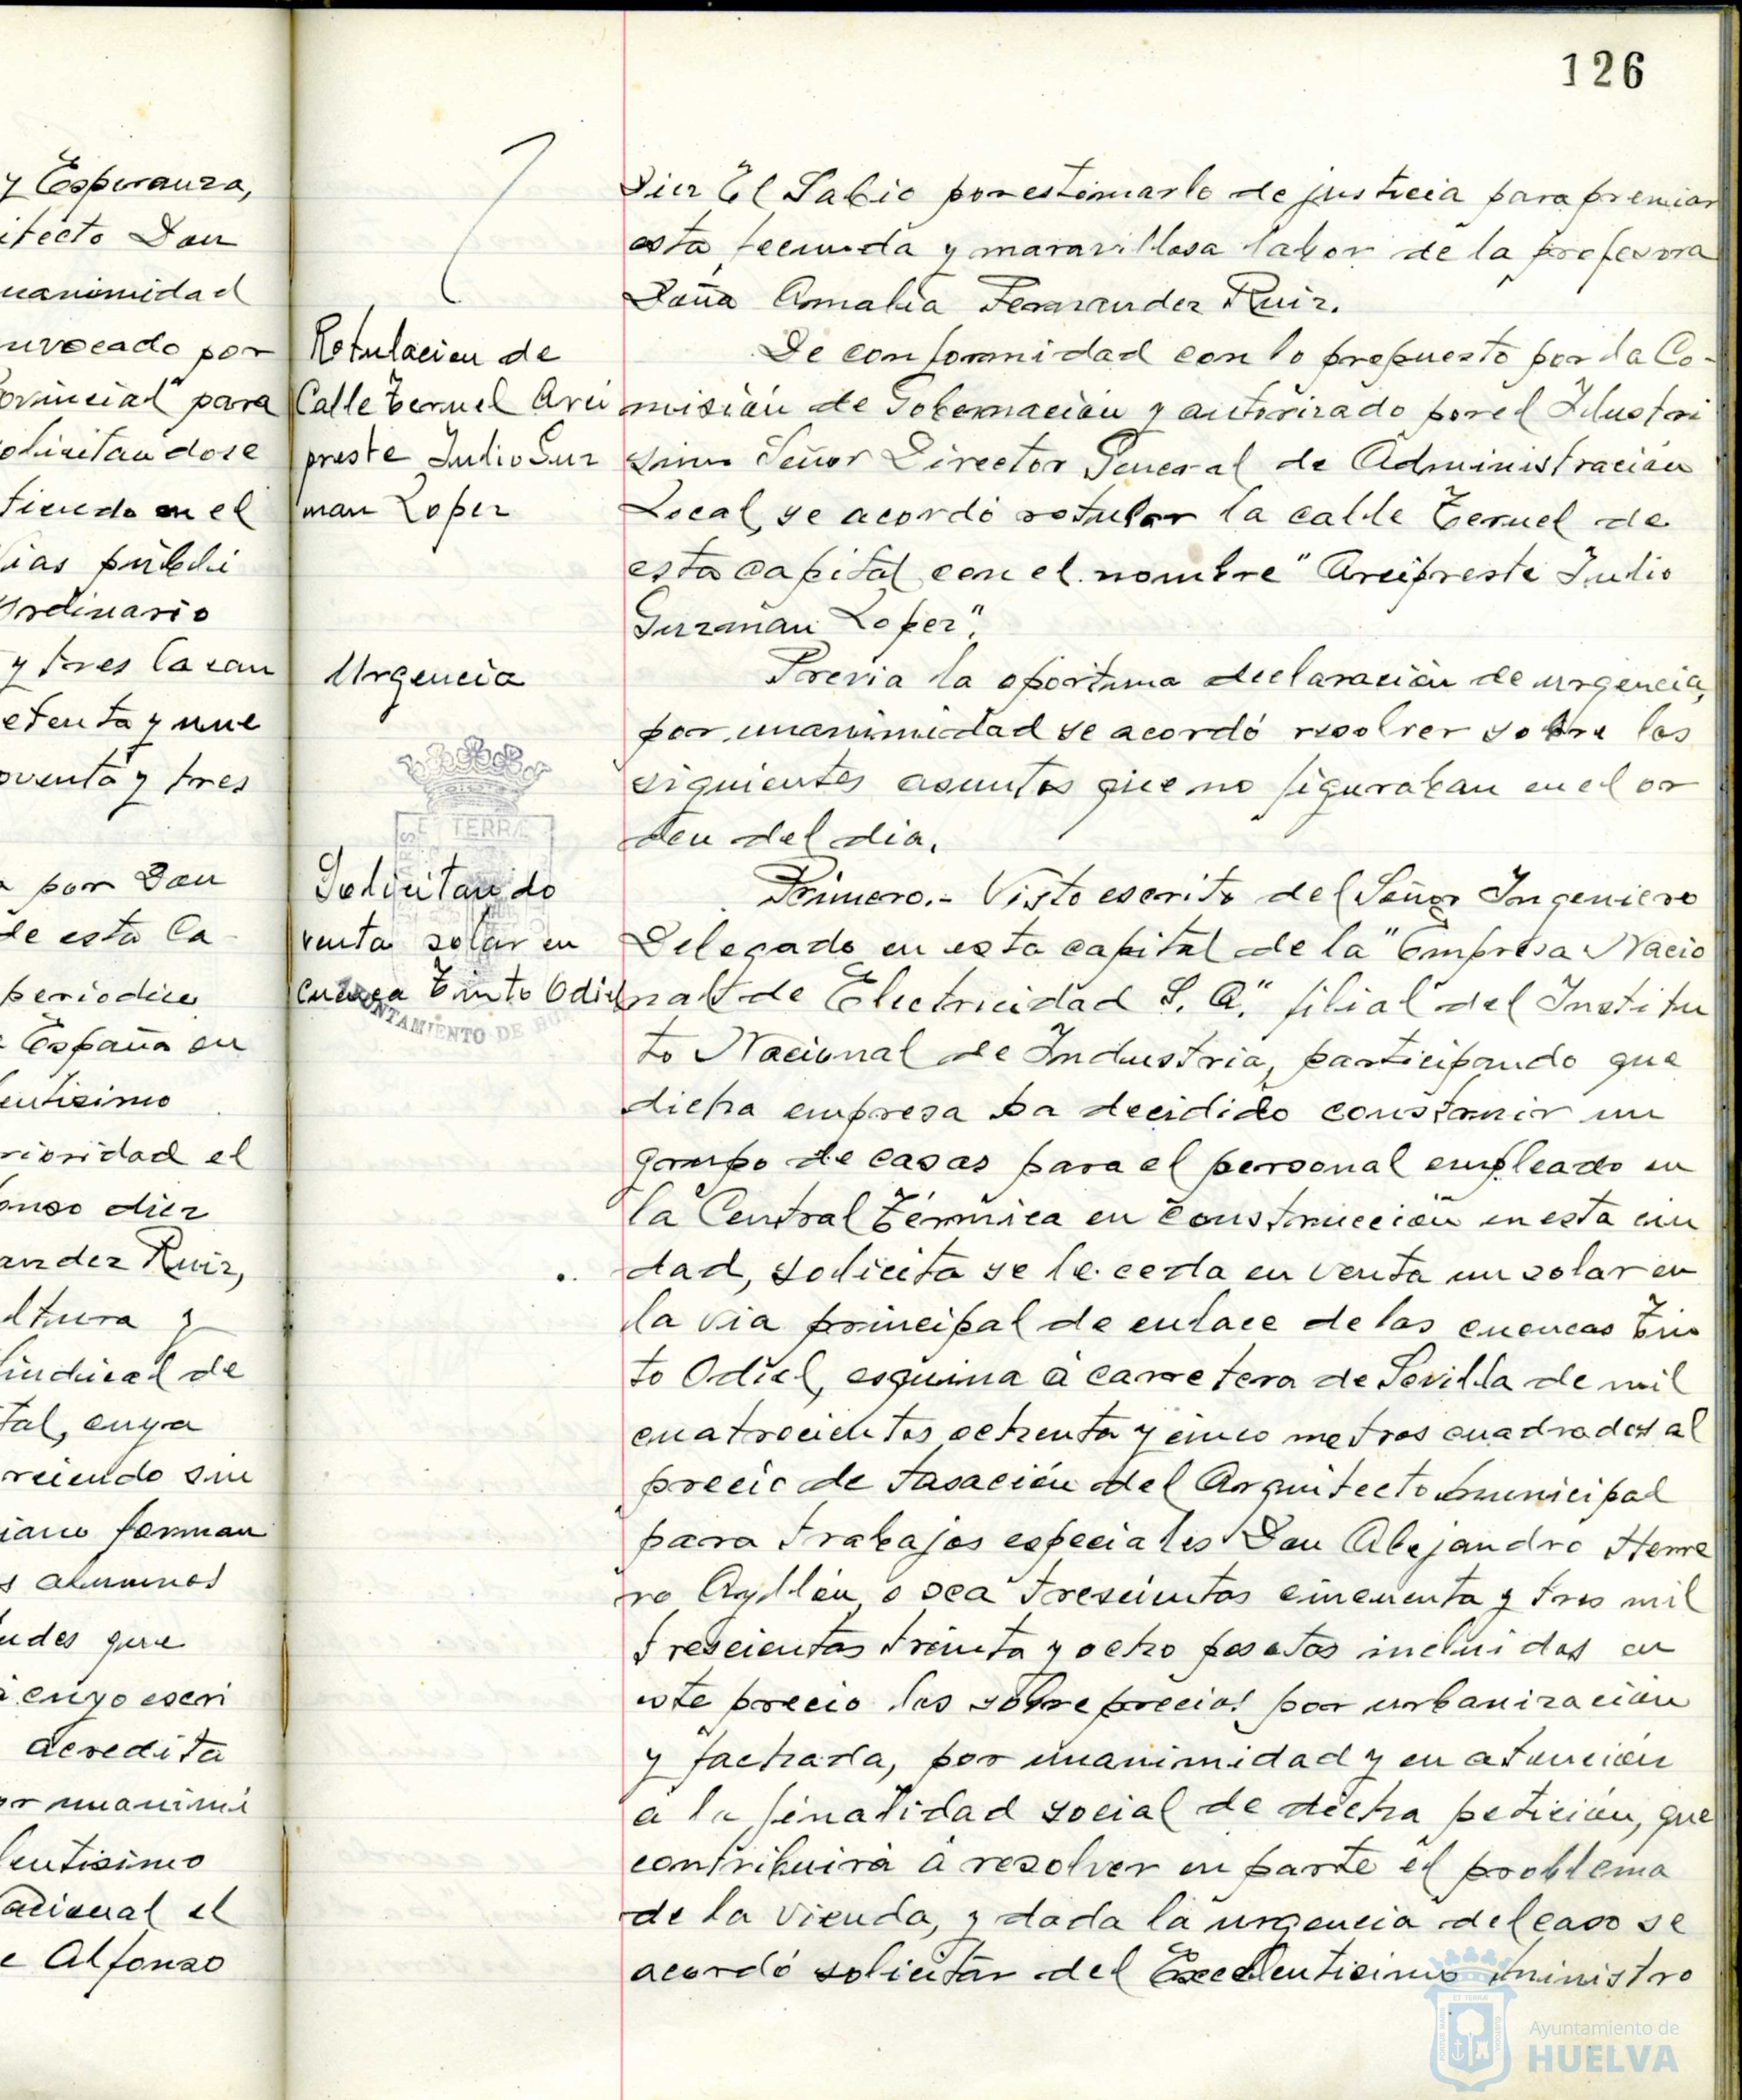 126
y Esperanza,
itecto Don
nanimidad
nvocado por
ovincial" para
olicitandose
tiendo en el
ias públi
ordinario
y tres la can
etenta y nue
oventa y tres
por Don
de esta Ca
periodico
España en
lentisimo
rioridad el
onso diez
andez Ruiz,
ltura y
indical de
tal, cuya
reciendo sin
forman
s alumnos
udes que
a cuyo escri
acredita
or unanimi
lentisimo
acional el
e Alfonso
Rotulacion de
Calle Teruel Arci
preste Julio Guz
man Lopez
Urgencia
Solicitando
venta solar en
cuenca Tinto Odiel
ET TERRÆ
AYUNTAMIENTO DE HUELVA
Diez El Sabio por estimarlo de justicia para premiar
esta fecunda y maravillosa labor de la profesora
Doña Amalia Fernandez Ruiz.
De conformidad con lo propuesto por la Co-
misión de Gobernación y autorizado por el Ilustri
simo Señor Director General de Administración
Local, se acordó rotular la calle Teruel de
esta capital con el nombre "Arcipreste Julio
Guzmán Lopez".
Previa la oportuna declaración de urgencia,
por unanimidad se acordó resolver sobre los
siguientes asuntos que no figuraban en el or
den del dia.
Primero.- Visto escrito del Señor Ingeniero
Delegado en esta capital de la "Empresa Nacio
nal de Electricidad S. A." filial del Institu
to Nacional de Industria, participando que
dicha empresa ha decidido construir un
grupo de casas para el personal empleado en
la Central Térmica en construcción en esta ciu
dad, solicita se le ceda en venta un solar en
la via principal de enlace de las cuencas Tin
to Odiel, esquina á carretera de Sevilla de mil
cuatrocientos ochenta y cinco metros cuadrados al
precio de tasación del Arquitecto municipal
para trabajos especiales Don Alejandro Herre
ro Ayllón, o sea trescientas cincuenta y tres mil
trescientas treinta y ocho pesetas incluidos en
este precio los sobreprecios por urbanización
y fachada, por unanimidad y en atención
a la finalidad social de dicha petición, que
contribuirá á resolver en parte el problema
de la vienda, y dada la urgencia del caso se
acordó solicitar del Excelentisimo ministro
Ayuntamiento de
HUELVA